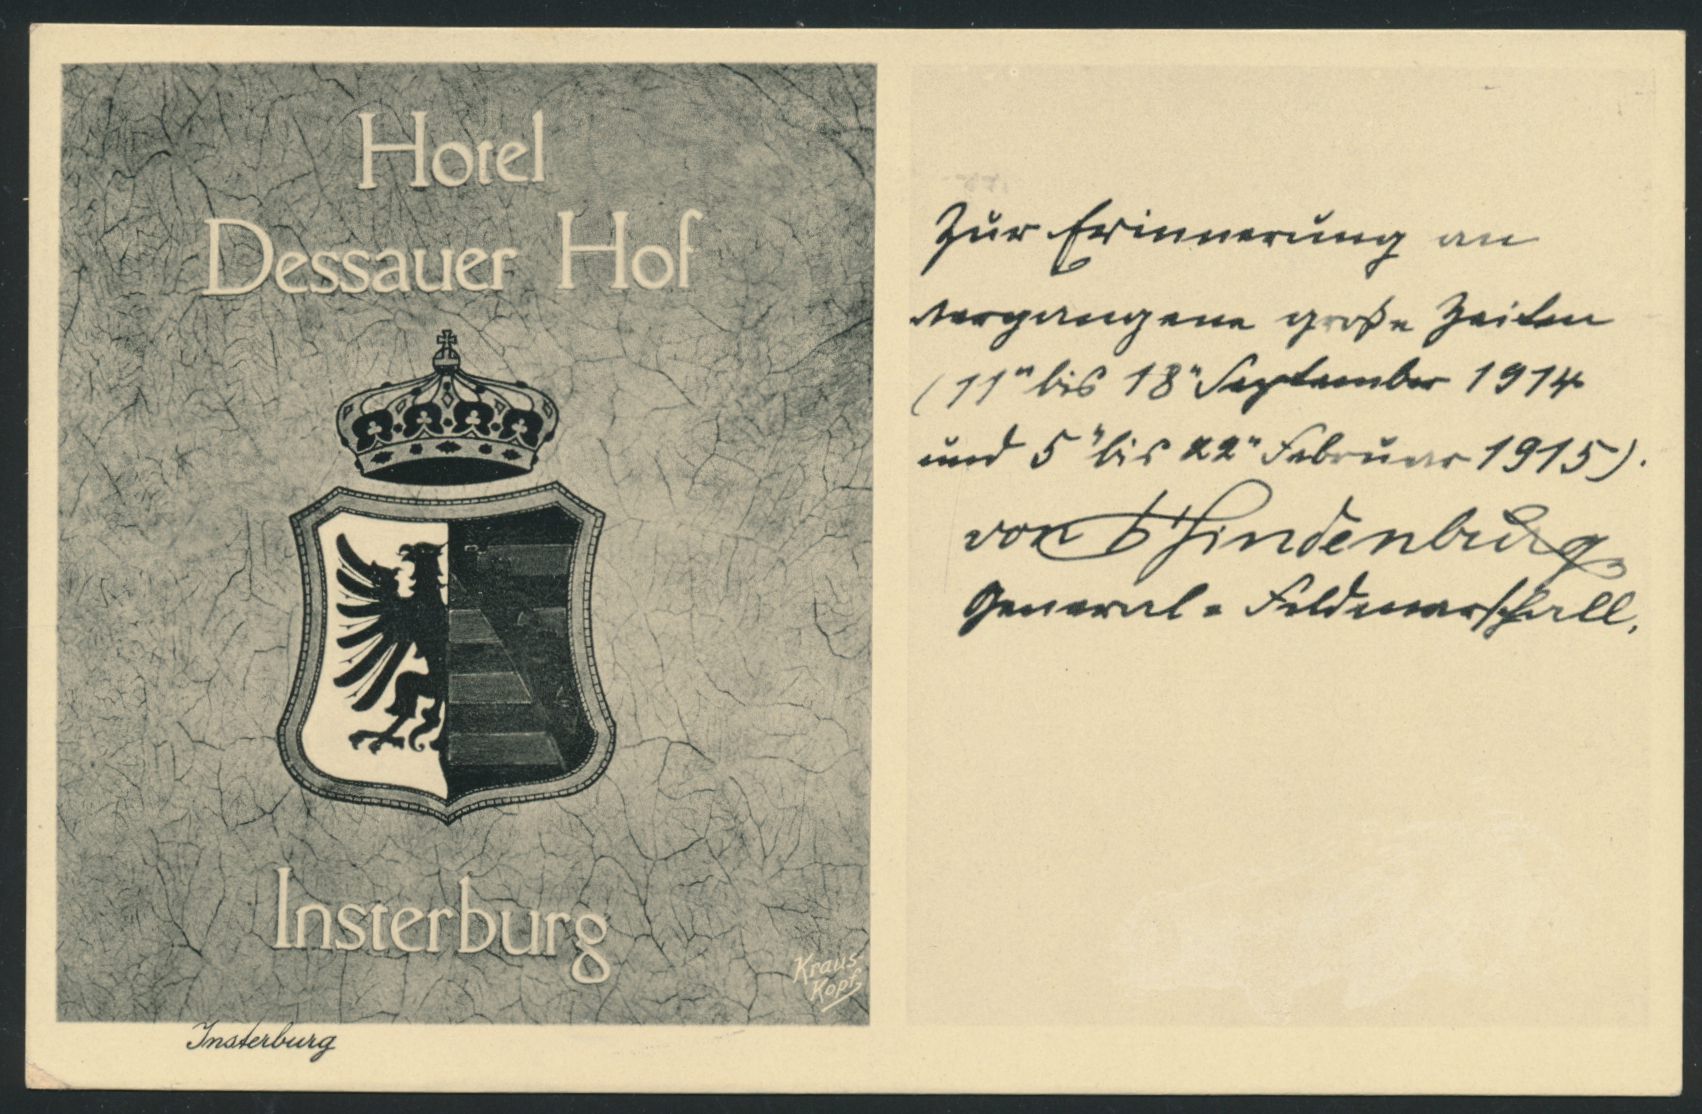 Hotel
Dessauer Hof
Insterburg
Kraus-
Kopf
Insterburg
Zur Erinnerung an
vergangene große Zeiten
(11" bis 18" September 1914
und 5" bis 22" Februar 1915).
von Hindenburg
General-Feldmarschall.